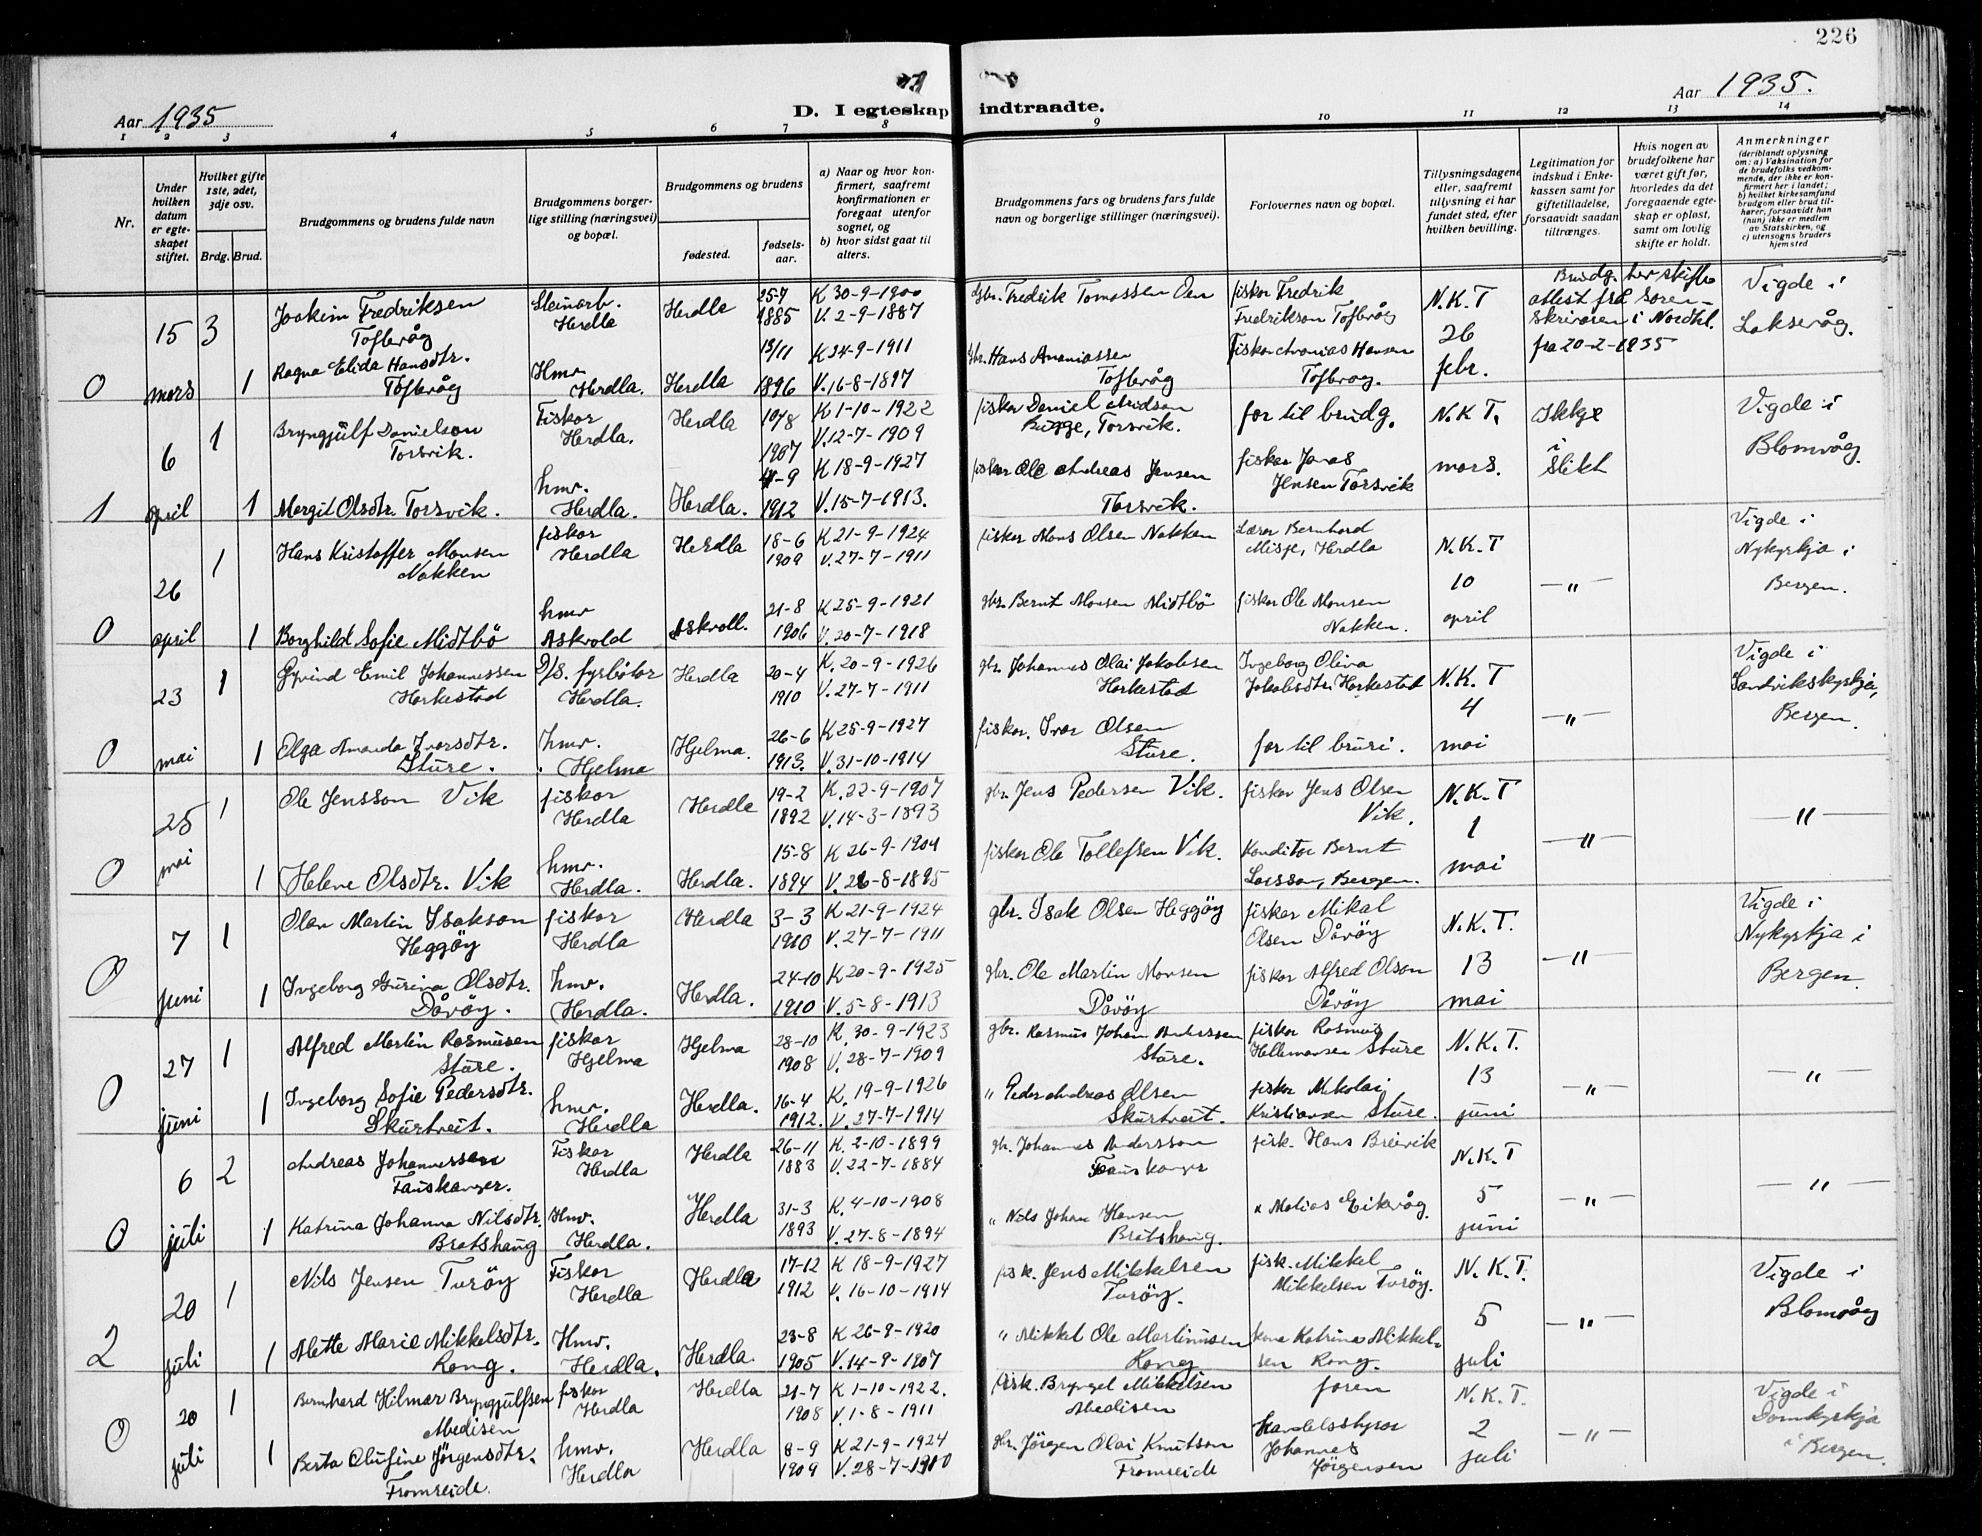 226
Aar 1935
D. I egteskap indtraadte.
Aar 1935.
1 2 3 4 5 6 7 8 9 10 11 12 13 14
Nr.
Under hvilken datum er egteskapet stiftet.
Hvilket gifte 1ste, 2det, 3dje osv.
Brdg. Brud.
Brudgommens og brudens fulde navn
Brudgommens borgerlige stilling (næringsvei) og bopæl.
Brudgommens og brudens
fødested.
fødselsaar.
a) Naar og hvor konfirmert, saafremt konfirmationen er foregaat utenfor sognet, og
b) hvor sidst gaat til alters.
Brudgommens fars og brudens fars fulde navn og borgerlige stillinger (næringsvei).
Forlovernes navn og bopæl.
Tillysningsdagene eller, saafremt tillysning ei har fundet sted, efter hvilken bevilling.
Legitimation for indskud i Enkekassen samt for giftetilladelse, forsaavidt saadan tiltrænges.
Hvis nogen av brudefolkene har været gift før, hvorledes da det foregaaende egteskap er opløst, samt om lovlig skifte er holdt.
Anmerkninger
(deriblandt oplysning om: a) Vaksination for de brudefolks vedkommende, der ikke er konfirmert her i landet; b) hvilket kirkesamfund brudgom eller brud tilhører, forsaavidt han (hun) ikke er medlem av Statskirken, og c) utensogns bruders hjemsted
0 15 mars 3 Joakim Fredriksen Toftevåg Steinarb. Herdla Herdla 25-7 1885 K 30-9-1900 V. 2-9-1887 gbr. Fredrik Tomassen Oen fiskar Fredrik Fredrikson Toftevåg N.K.T 26 febr. Brudg. har skifteattest frå Sorenskrivaren i Nordhl. fra 20-2-1935 Vigde i Laksevåg.
1 Ragna Elida Hansdtr. Toftevåg Hmv. Herdla. Herdla 13/11 1896 K 24-9-1911 V. 16-8-1897 gbr. Hans Ananiassen Toftevåg fiskar Ananias Hansen Toftevag.
1 6 april 1 Bryngjulf Danielson Torsvik. Fiskar Herdla. Herdla 10/8 1907 K 1-10-1922 V. 12-7-1909 fiskar Daniel Bugge, Torsvik. far til brudg. N.K.T. mars. Ikkje i slikt Vigde i Blomvåg.
1 Margit Olsdtr. Torsvik. hmv. Herdla. Herdla. 1912 K 18-9-1927 V. 15-7-1913. fiskar Ole Andreas Jensen Torsvik. fiskar Jonas Jensen Torsvik
0 26 april 1 Hans Kristoffer Monsen Nakken fiskar Herdla Herdla 18-6 1909 K 21-9-1924 V. 27-7-1911 fiskar Mons Olsen Nakken Lærar Bernhard Misje, Herdla N.K.T 10 april —„— Vigde i Nykyrkja i Bergen.
1 Borghild Sofie Midtbö hmv Askvold Askvoll. 21-8 1906 K 25-9-1921 V. 20-7-1918 gbr. Bernt Monsen Midtbö fiskar Ole Monsen Nakken.
0 23 mai 1 Øyvind Emil Johannessen Harkestad D/S. fyrbøtar Herdla. Herdla 20-4 1910 K. 20-9-1926 V. 27-7-1911 gbr. Johannes Olai Jakobsen Harkestad Ingeborg Oliva Jakobsdtr. Harkestad N.K.T 4 mai —„— Vigde i Sandvikskyrkja, Bergen.
1 Olga Amanda Ivarsdtr. Sture. hmv. Hjelma Hjelma. 26-6 1913. K 25-9-1927 V. 31-10-1914 fiskar. Ivar Olsen Sture. far til bruri.
0 25 mai 1 Ole Jensson Vik fiskar Herdla Herdla 19-2 1892 K. 22-9-1907 V. 14-3-1893 gbr. Jens Pedersen Vik. fiskar Jens Olsen Vik. N.K.T 1 mai —„— —„—
1 Helene Olsdtr. Vik hmv. Herdla. Herdla. 15-8 1894 K 26-9-1909 V. 26-8-1895 fiskar Ole Tollefsen Vik. Konditor Bernt Larsson, Bergen.
0 7 juni 1 Olav Martin Isakson Heggöy fiskar Herdla Herdla 3-3 1910 K 21-9-1924 V. 27-7-1911 gbr. Isak Olsen Heggöy fiskar Mikal Olsen Dåvöy N.K.T. 13 mai —„— Vigde i Nykyrkja i Bergen.
1 Ingeborg Gurina Olsdtr. Dåvöy. hmv. Herdla. Herdla. 24-10 1910 K 20-9-1925 V. 5-8-1913 gbr. Ole Martin Monsen Dåvöy fiskar Alfred Olson Dåvöy
0 27 juni 1 Alfred Martin Rasmusen Sture. fiskar Hjelma Hjelma 28-10 1908 K. 30-9-1923 V. 28-7-1909 gbr. Rasmus Johan Andersen Sture. fiskar Rasmus Hellemansen Sture N.K.T. 13 juni —„— —„—
1 Ingeborg Sofie Pedersdtr. Skurtveit. hmv. Herdla Herdla. 16-4 1912. K. 19-9-1926 V. 27-7-1914 „ Peder Andreas Olsen Skurtveit. fiskar Nikolai Kristiansen Sture.
0 6 juli 2 Andreas Johannessen Fauskanger. Fiskar Herdla Herdla 26-11 1883 K. 2-10-1899 V. 22-7-1884 gbr. Johannes Andersson Fauskanger fisk. Hans Breivik N.K.T 5 juni —„— —„—
1 Katrina Johanna Nilsdtr. Bratshaug Hmv. Herdla. Herdla 31-3 1893 K. 4-10-1908 V. 27-8-1894 „ Nils Johan Hansen Bratshaug. „ Matias Eikevåg.
2 20 juli 1 Nils Jensen Turöy Fiskar Herdla Herdla 17-12 1912 K 18-9-1927 V. 16-10-1914 fisk. Jens Mikkelsen Turöy. fisk. Mikkel Mikkelsen Turöy. N.K.T. 5 juli —„— Vigde i Blomvåg
1 Mette Marie Mikkelsdtr. Rong. Hmv. Herdla. Herdla. 23-8 1905 K 26-9-1920 V. 14-9-1907 „ Mikkel Ole Martinusen Rong kona Katrina Mikkelsen Rong.
0 20 juli 1 Bernhard Hilmar Bryngjulfsen Abedisen fiskar Herdla Herdla 21-7 1908 K 1-10-1922. V. 1-8-1911 fisk. Bryngel Mikkelsen Abedisen faren N.K.T. 2 juli —„— Vigde i Domkyrkja i Bergen.
1 Berta Olufine Jörgensdtr. Fromreide. hmv. Herdla Herdla 8-9 1909 K 21-9-1924 V. 28-7-1910 gbr. Jörgen Olai Knutson Fromreide Handelsstyrar Johannes Jörgensen